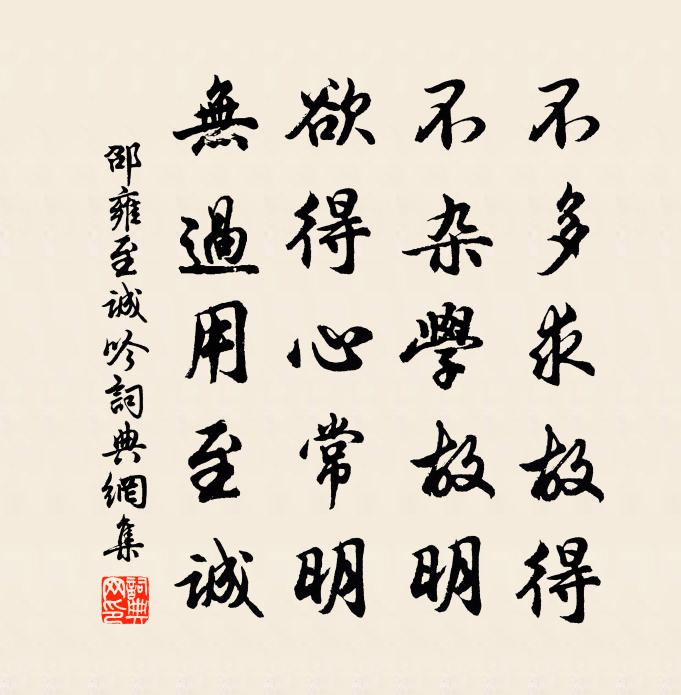 不多求故得
不杂學故明
欲得心常明
無過用至誠
邵雍至誠吟詞典網集
詞典網印